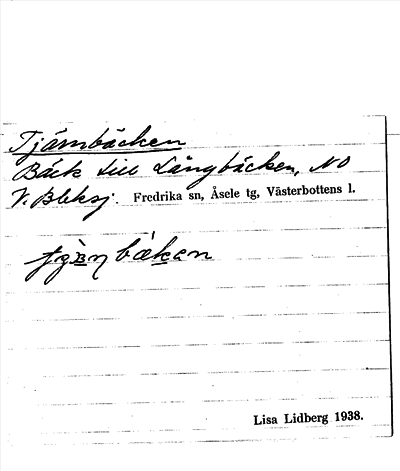 Tjärnbäcken
Bäck till Långbäcken, NO
V. Blksj. Fredrika sn, Åsele tg, Västerbottens l.
Lisa Lidberg 1938.